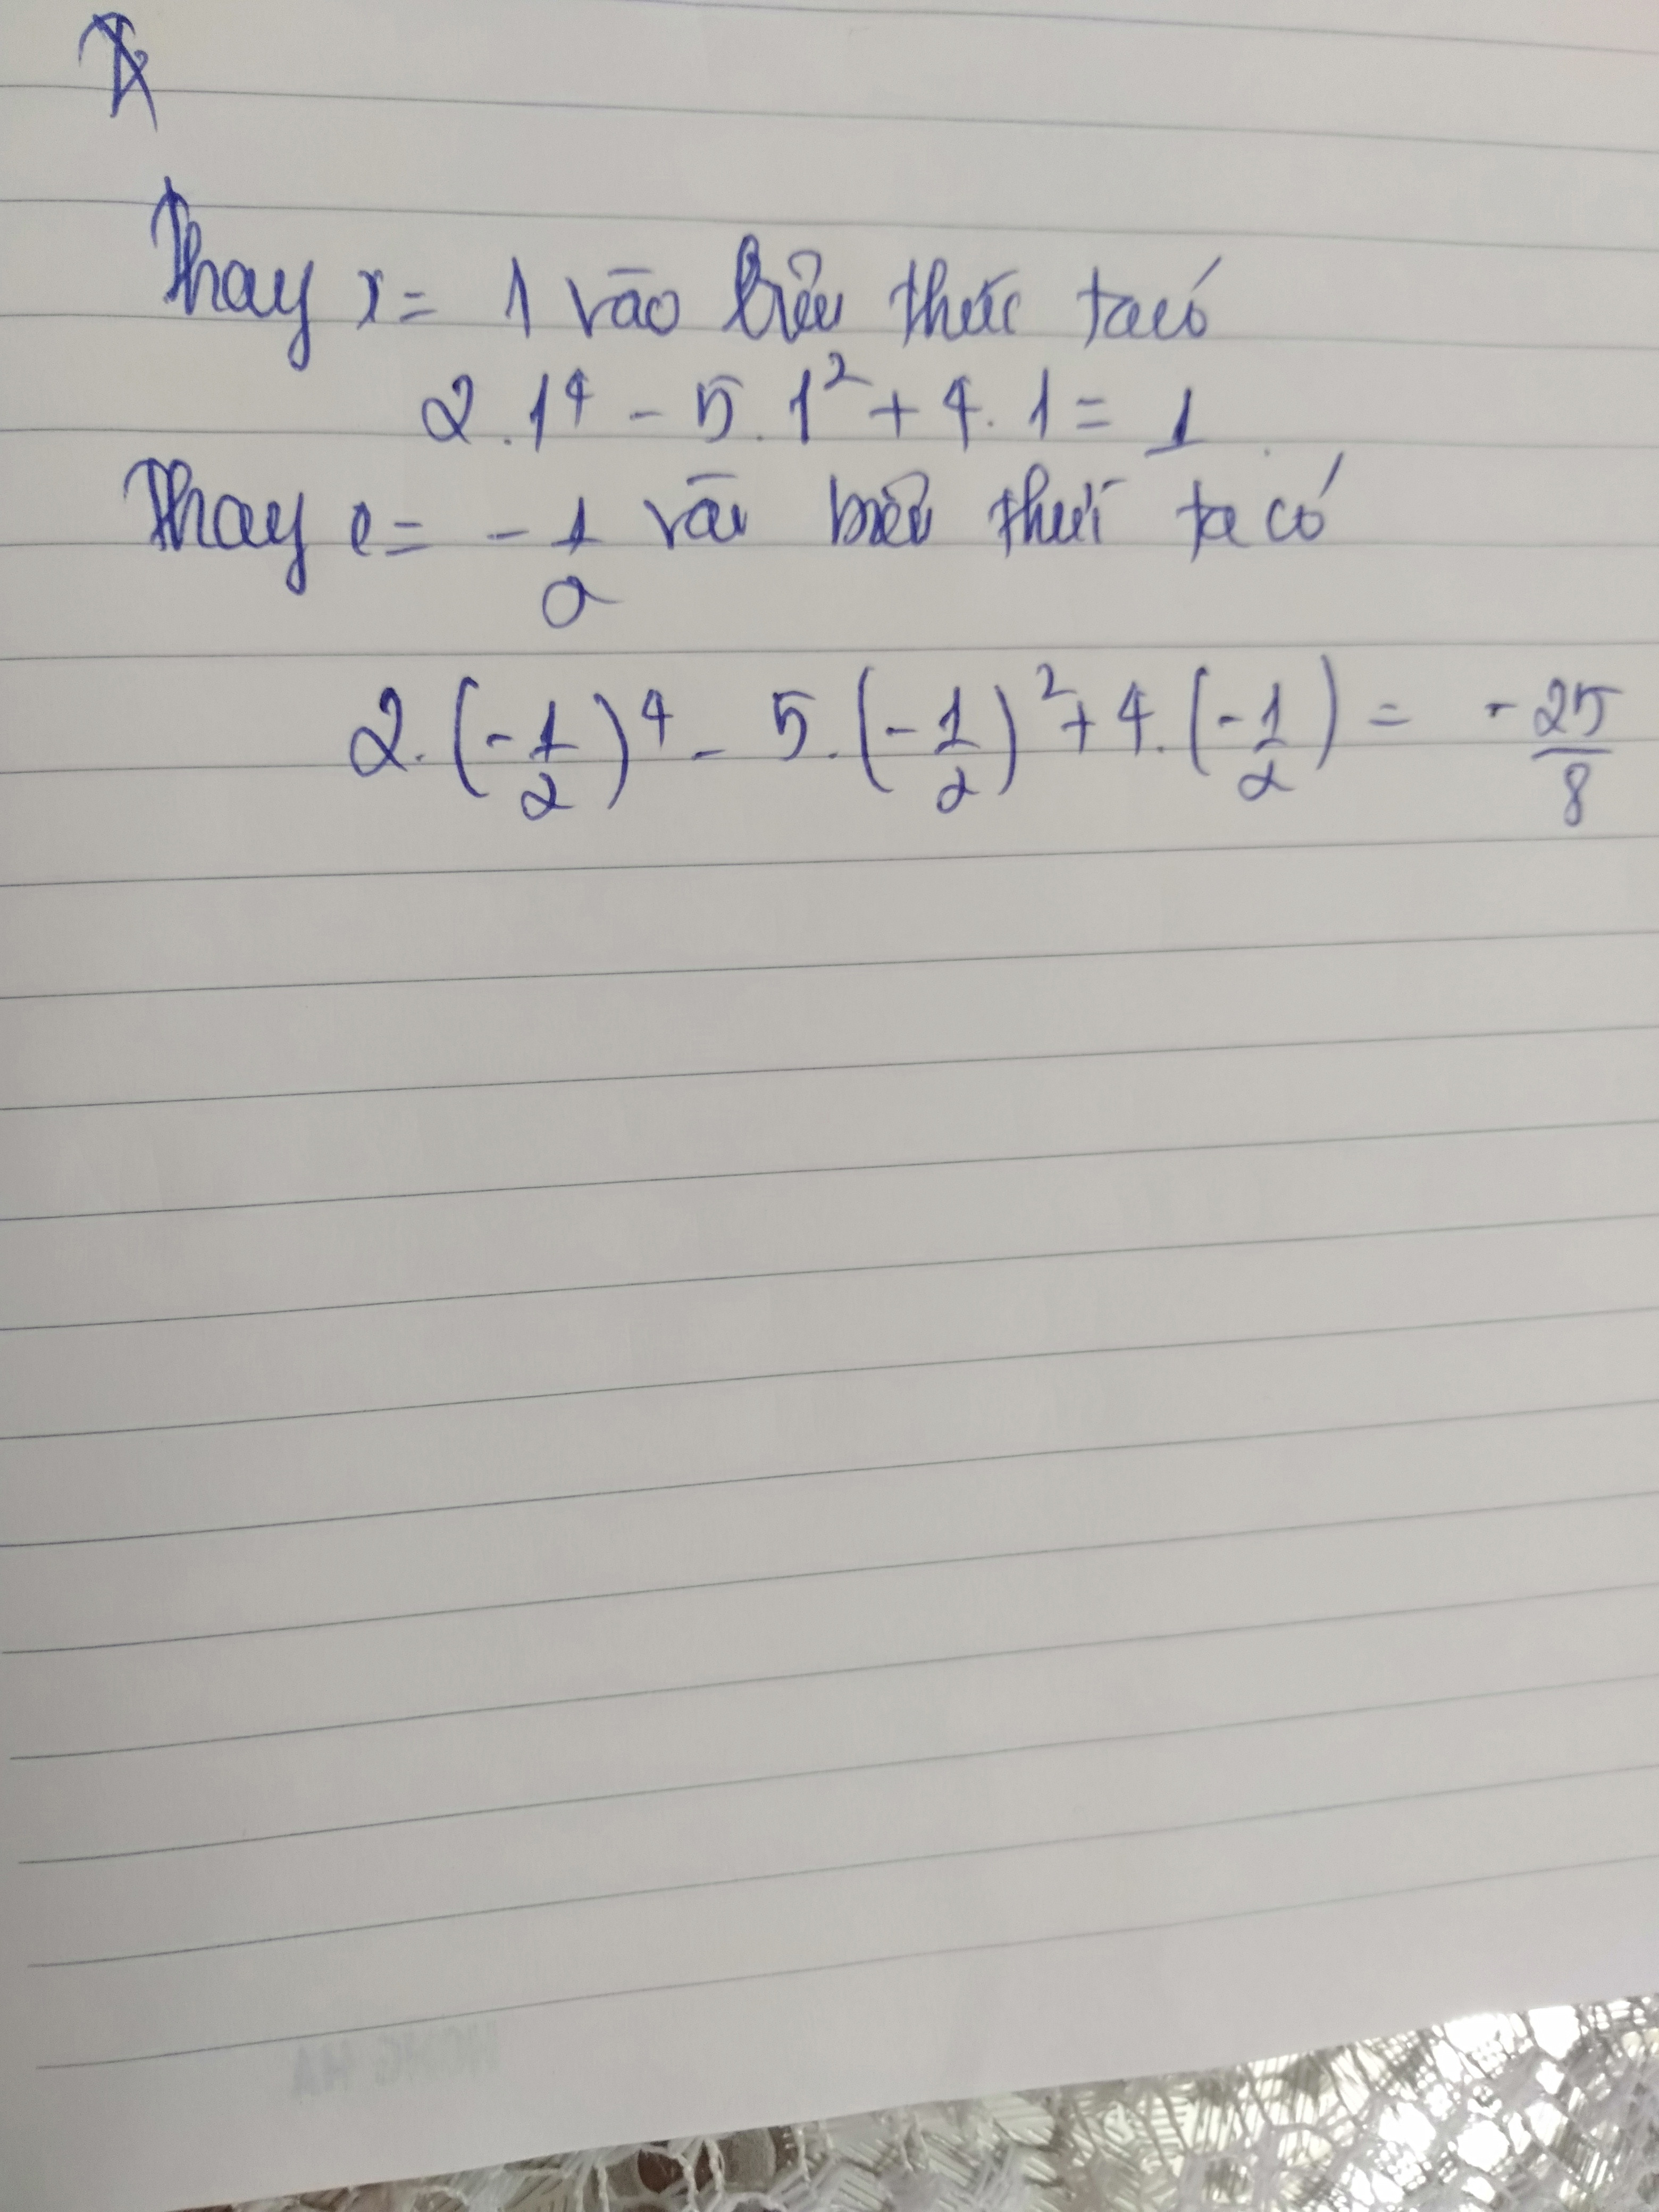 Thay x = 1 vào biểu thức ta có
2.1⁴ - 5.1² + 4.1 = 1
Thay x = -1/2 vào biểu thức ta có
2.(-1/2)⁴ - 5.(-1/2)² + 4.(-1/2) = -25/8
HONG HA